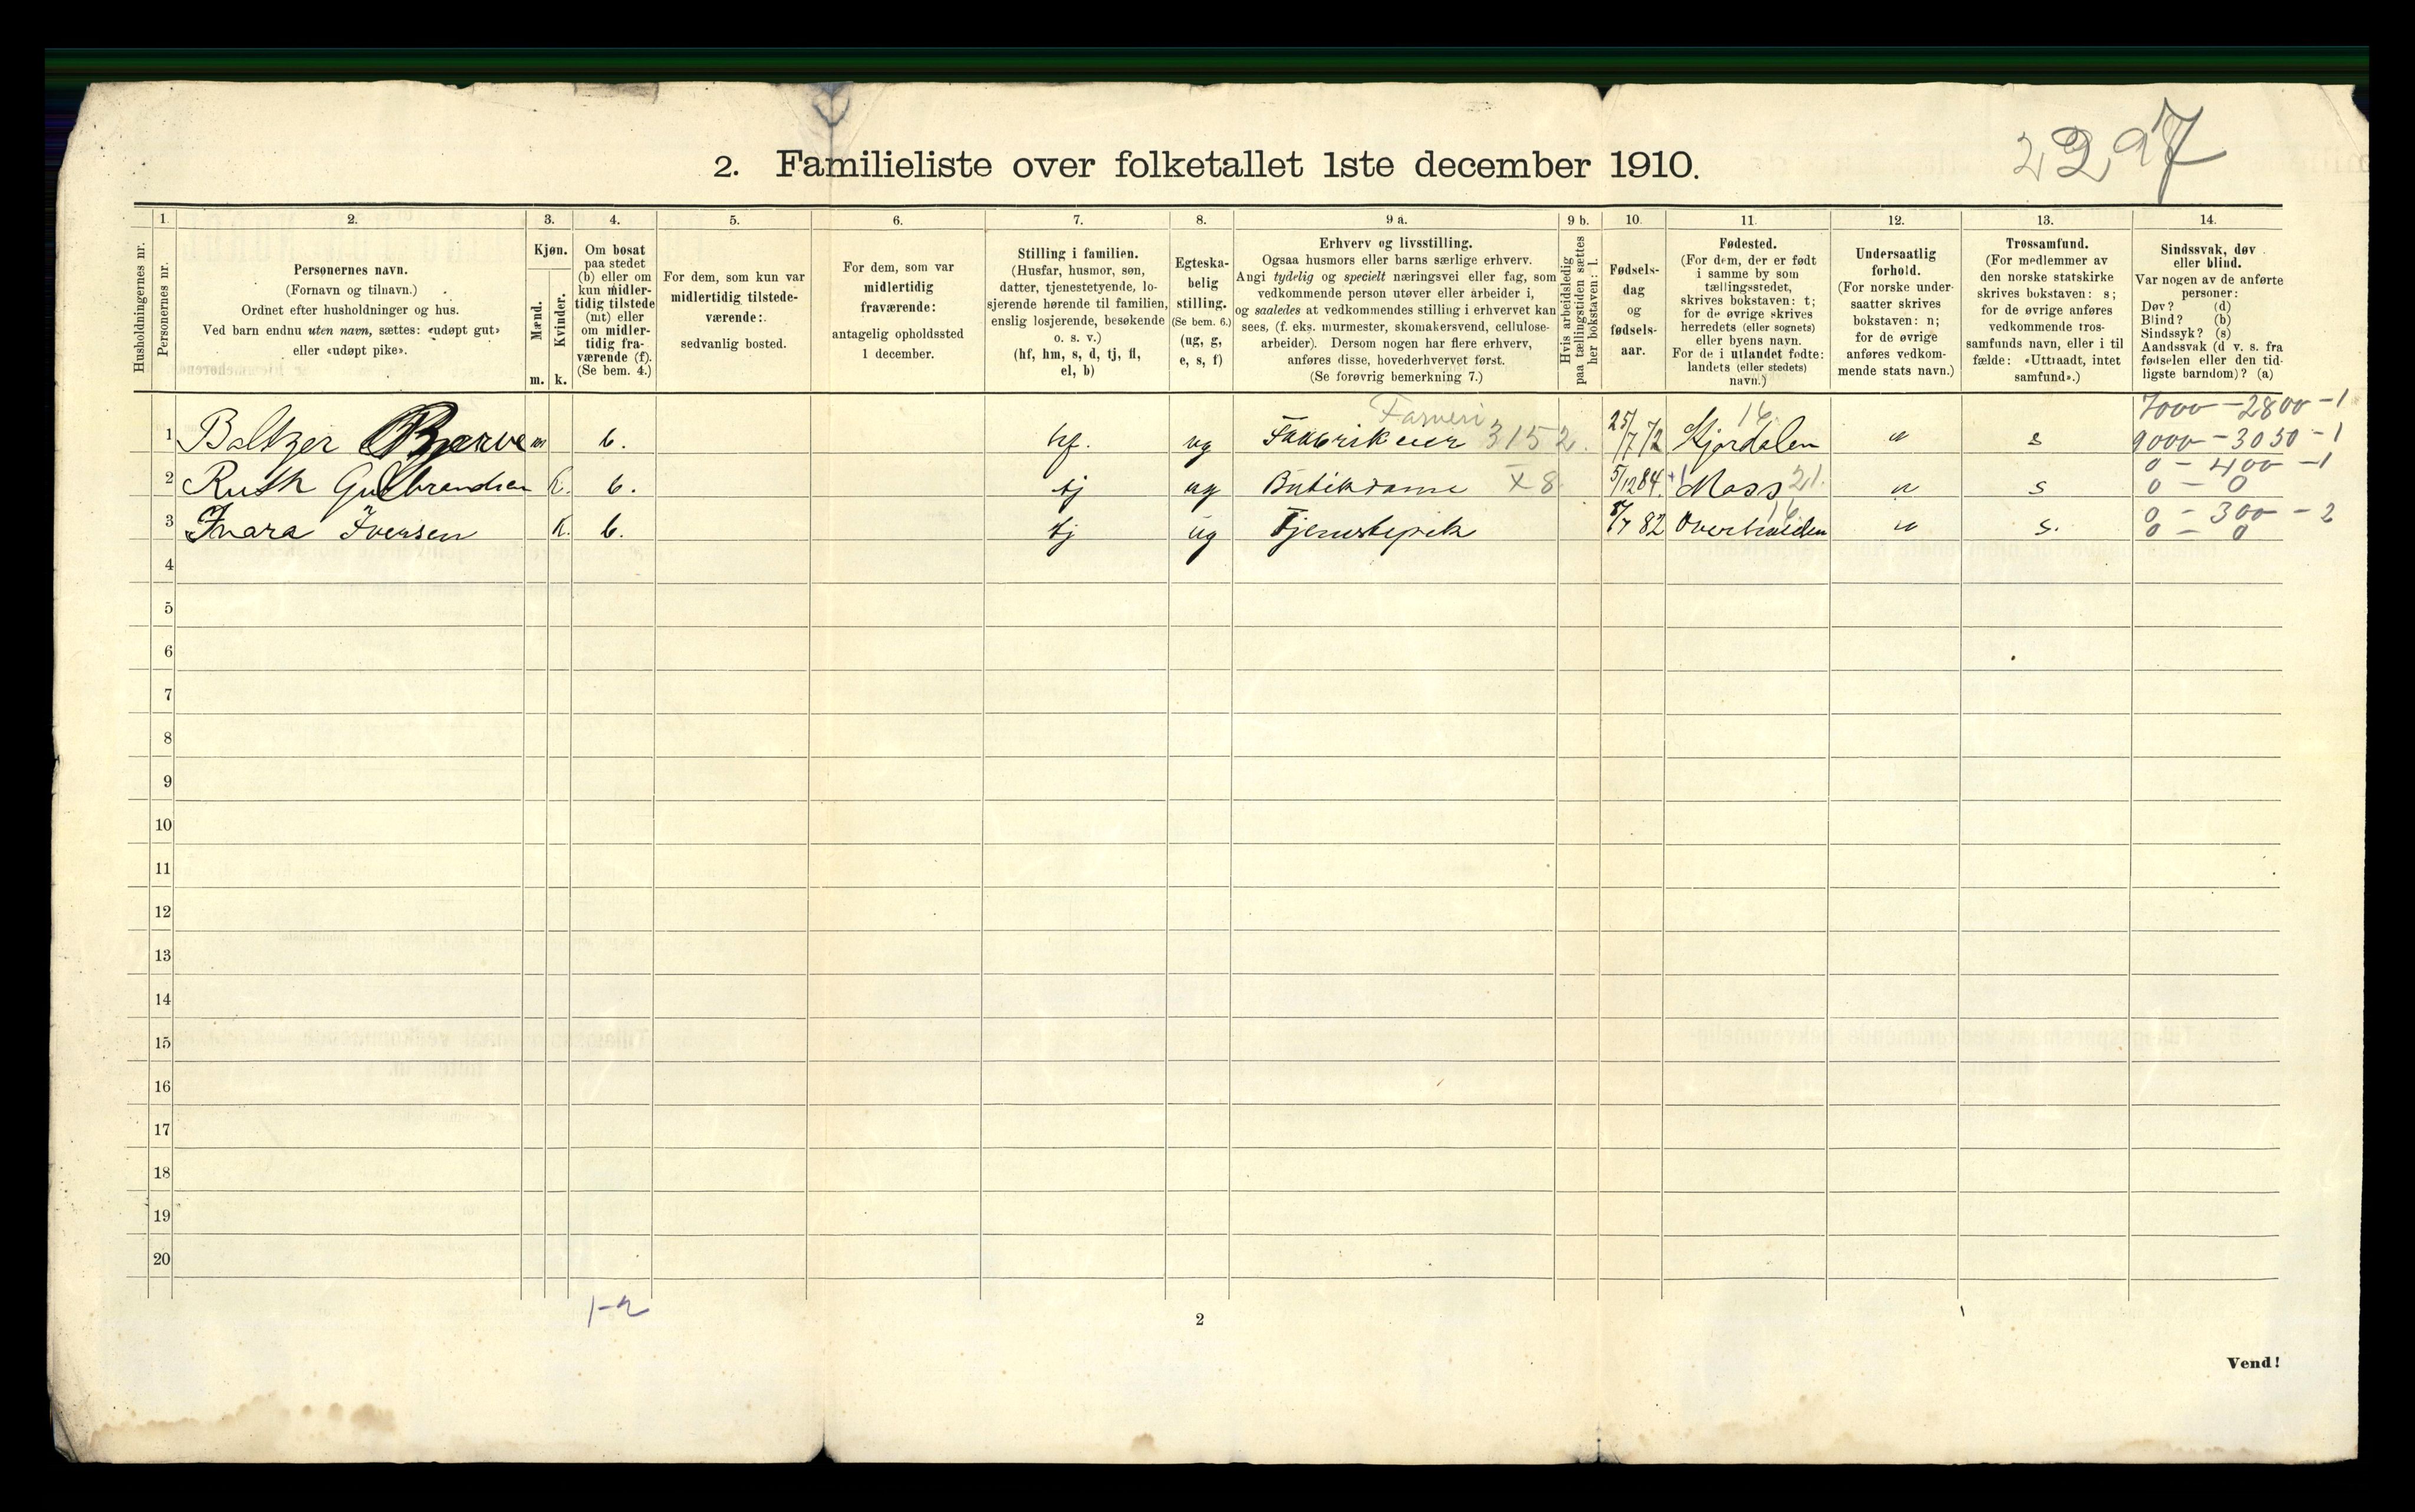 2297
2. Familieliste over folketallet 1ste december 1910.
1. 2. 3. 4. 5. 6. 7. 8. 9 a. 9 b. 10. 11. 12. 13. 14.
Husholdningernes nr.
Personernes nr.
Personernes navn.
(Fornavn og tilnavn.)
Ordnet efter husholdninger og hus.
Ved barn endnu uten navn, sættes: «udøpt gut»
eller «udøpt pike».
Kjøn.
Mænd.
Kvinder.
m. k.
Om bosat
paa stedet
(b) eller om
kun midler-
tidig tilstede
(mt) eller
om midler-
tidig fra-
værende (f).
(Se bem. 4.)
For dem, som kun var
midlertidig tilstede-
værende:
sedvanlig bosted.
For dem, som var
midlertidig
fraværende:
antagelig opholdssted
1 december.
Stilling i familien.
(Husfar, husmor, søn,
datter, tjenestetyende, lo-
sjerende hørende til familien,
enslig losjerende, besøkende
o. s. v.)
(hf, hm, s, d, tj, fl,
el, b)
Egteska-
belig
stilling.
(Se bem. 6.)
(ug, g,
e, s, f)
Erhverv og livsstilling.
Ogsaa husmors eller barns særlige erhverv.
Angi tydelig og specielt næringsvei eller fag, som
vedkommende person utøver eller arbeider i,
og saaledes at vedkommendes stilling i erhvervet kan
sees, (f. eks. murmester, skomakersvend, cellulose-
arbeider). Dersom nogen har flere erhverv,
anføres disse, hovederhvervet først.
(Se forøvrig bemerkning 7.)
Hvis arbeidsledig
paa tællingstiden sættes
her bokstaven: l.
Fødsels-
dag
og
fødsels-
aar.
Fødested.
(For dem, der er født
i samme by som
tællingsstedet,
skrives bokstaven: t;
for de øvrige skrives
herredets (eller sognets)
eller byens navn.
For de i utlandet fødte:
landets (eller stedets)
navn.)
Undersaatlig
forhold.
(For norske under-
saatter skrives
bokstaven: n;
for de øvrige
anføres vedkom-
mende stats navn.)
Trossamfund.
(For medlemmer av
den norske statskirke
skrives bokstaven: s;
for de øvrige anføres
vedkommende tros-
samfunds navn, eller i til
fælde: «Uttraadt, intet
samfund».)
Sindssvak, døv
eller blind.
Var nogen av de anførte
personer:
Døv? (d)
Blind? (b)
Sindssyk? (s)
Aandssvak (d v. s. fra
fødselen eller den tid-
ligste barndom)? (a)
Farveri 16 7000 - 2800 - 1
1 Baltzer m b. hf. ug Fabrikeier 3152. 25/7 72 Stjørdalen n s 9000 - 3050 - 1
0 - 400 - 1
2 Ruth Gulbrandsen k. b. tj ug Butikdame X 8 5/12 84. Moss 21. n s 0 - 0
16 0 - 300 - 2
3 Inara Iversen k. b. tj ug Tjenestepik /7 82 Overhalden n s. 0 - 0
4
5
6
7
8
9
10
11
12
13
14
15
16
17
18
19
20
1-2
2
Vend!